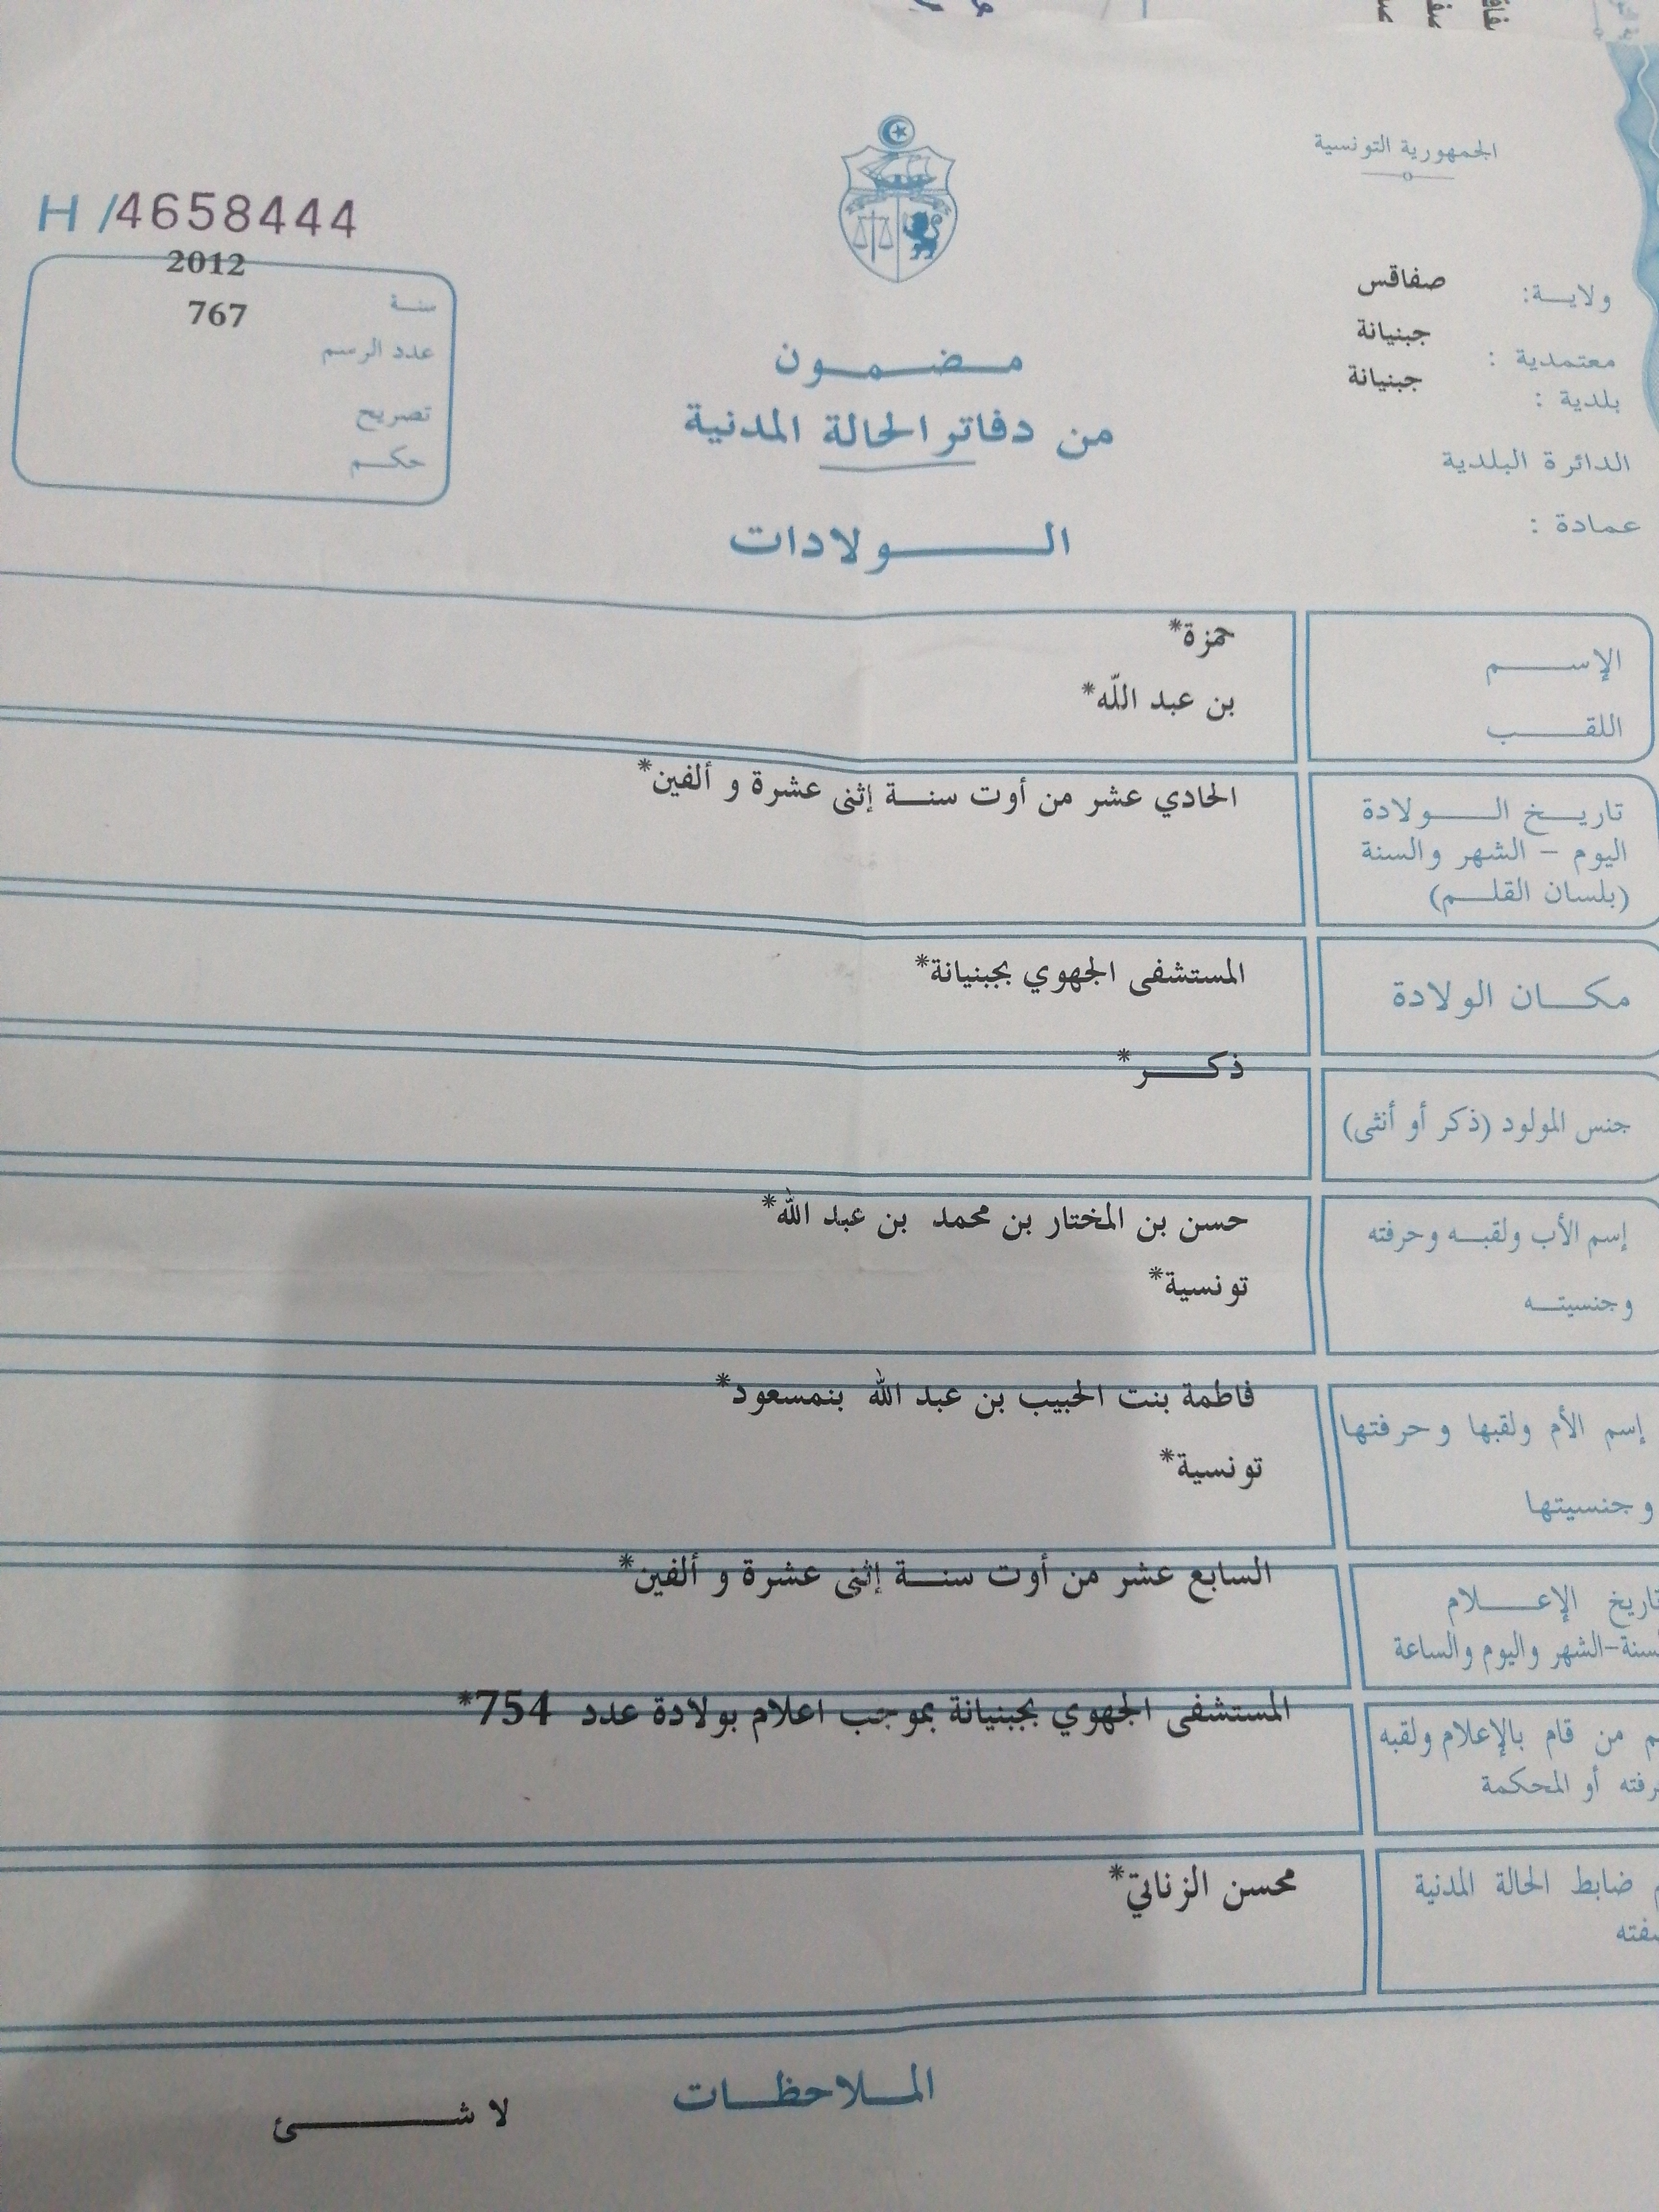 الجمهورية التونسية
ولايـــة: صفاقس
معتمدية : جبنيانة
بلدية : جبنيانة
الدائرة البلدية
عمادة :
H/4658444
سنـة 2012
عدد الرسم 767
تصريح
حكـم
مـضـمـون
من دفاتر الحالة المدنية
الـولادات
الإســـم حمزة*
اللقـــب بن عبد اللّه*
تاريـــخ الـــولادة الحادي عشر من أوت سنـــة إثنى عشرة و ألفين*
اليوم – الشهر والسنة
(بلسان القلـــم)
مكـــان الولادة المستشفى الجهوي بجبنيانة*
جنس المولود (ذكر أو أنثى) ذكـــر*
إسم الأب ولقبـه وحرفته حسن بن المختار بن محمد بن عبد الله*
وجنسيتـه تونسية*
إسم الأم ولقبها وحرفتها فاطمة بنت الحبيب بن عبد الله بنمسعود*
وجنسيتها تونسية*
تاريخ الإعـــلام السابع عشر من أوت سنـــة إثنى عشرة و ألفين*
السنة-الشهر واليوم والساعة
من قام بالإعلام ولقبه المستشفى الجهوي بجبنيانة بموجب اعلام بولادة عدد 754*
أو المحكمة
ضابط الحالة المدنية محسن الزناتي*
المـلاحظـات
لا شـــئ